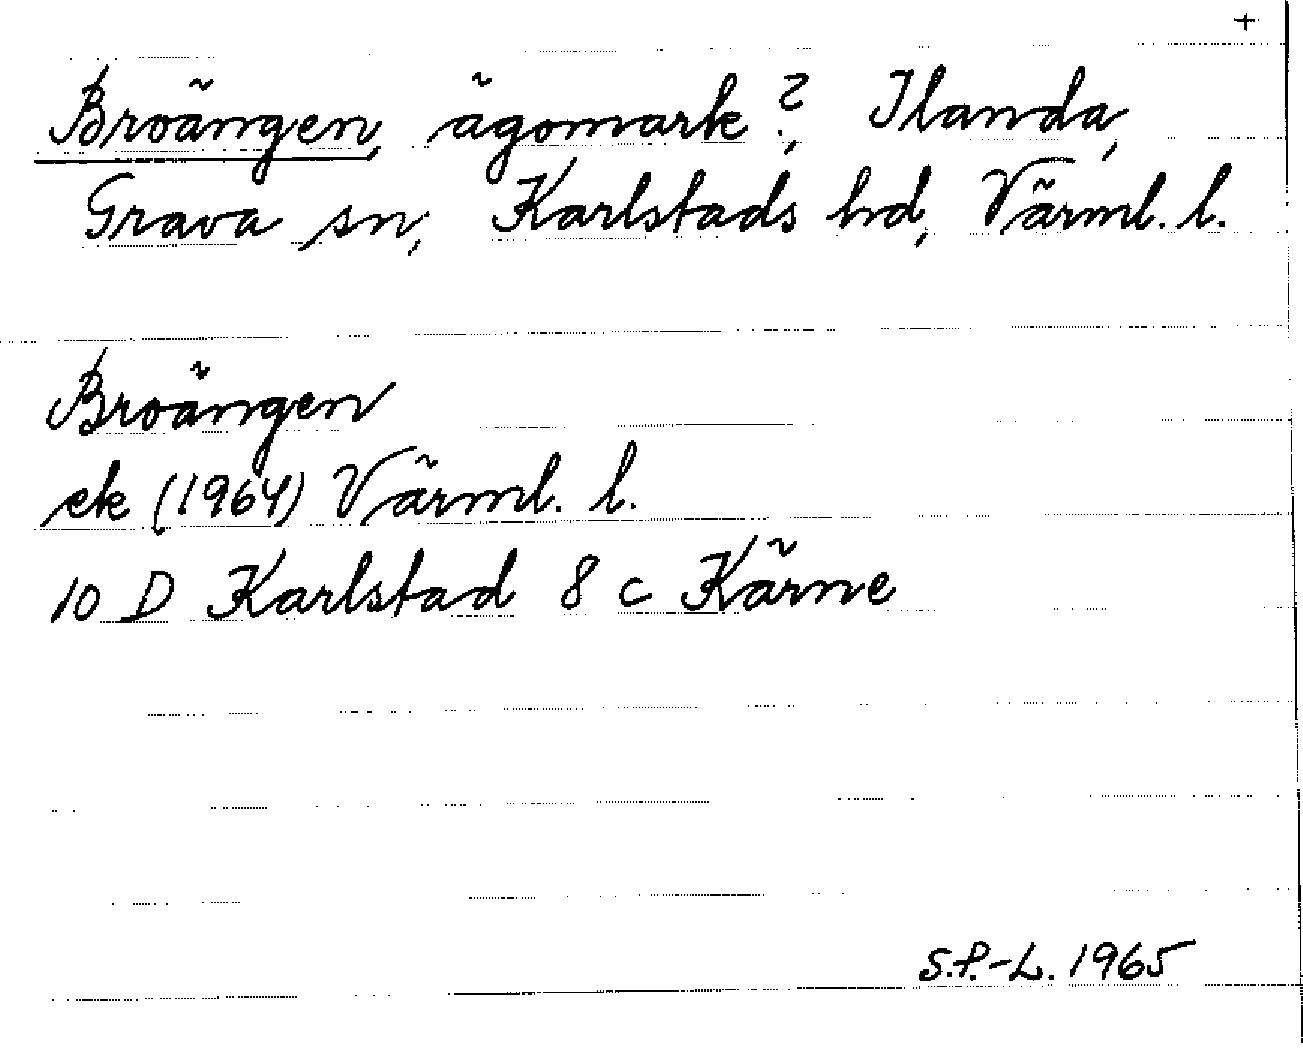 +
Broängen, ägomark?, Ilanda,
Grava sn, Karlstads hd, Värml. l.
Broängen
ek (1964) Värml. l.
10 D Karlstad 8 c Kärne
S.P.-L. 1965